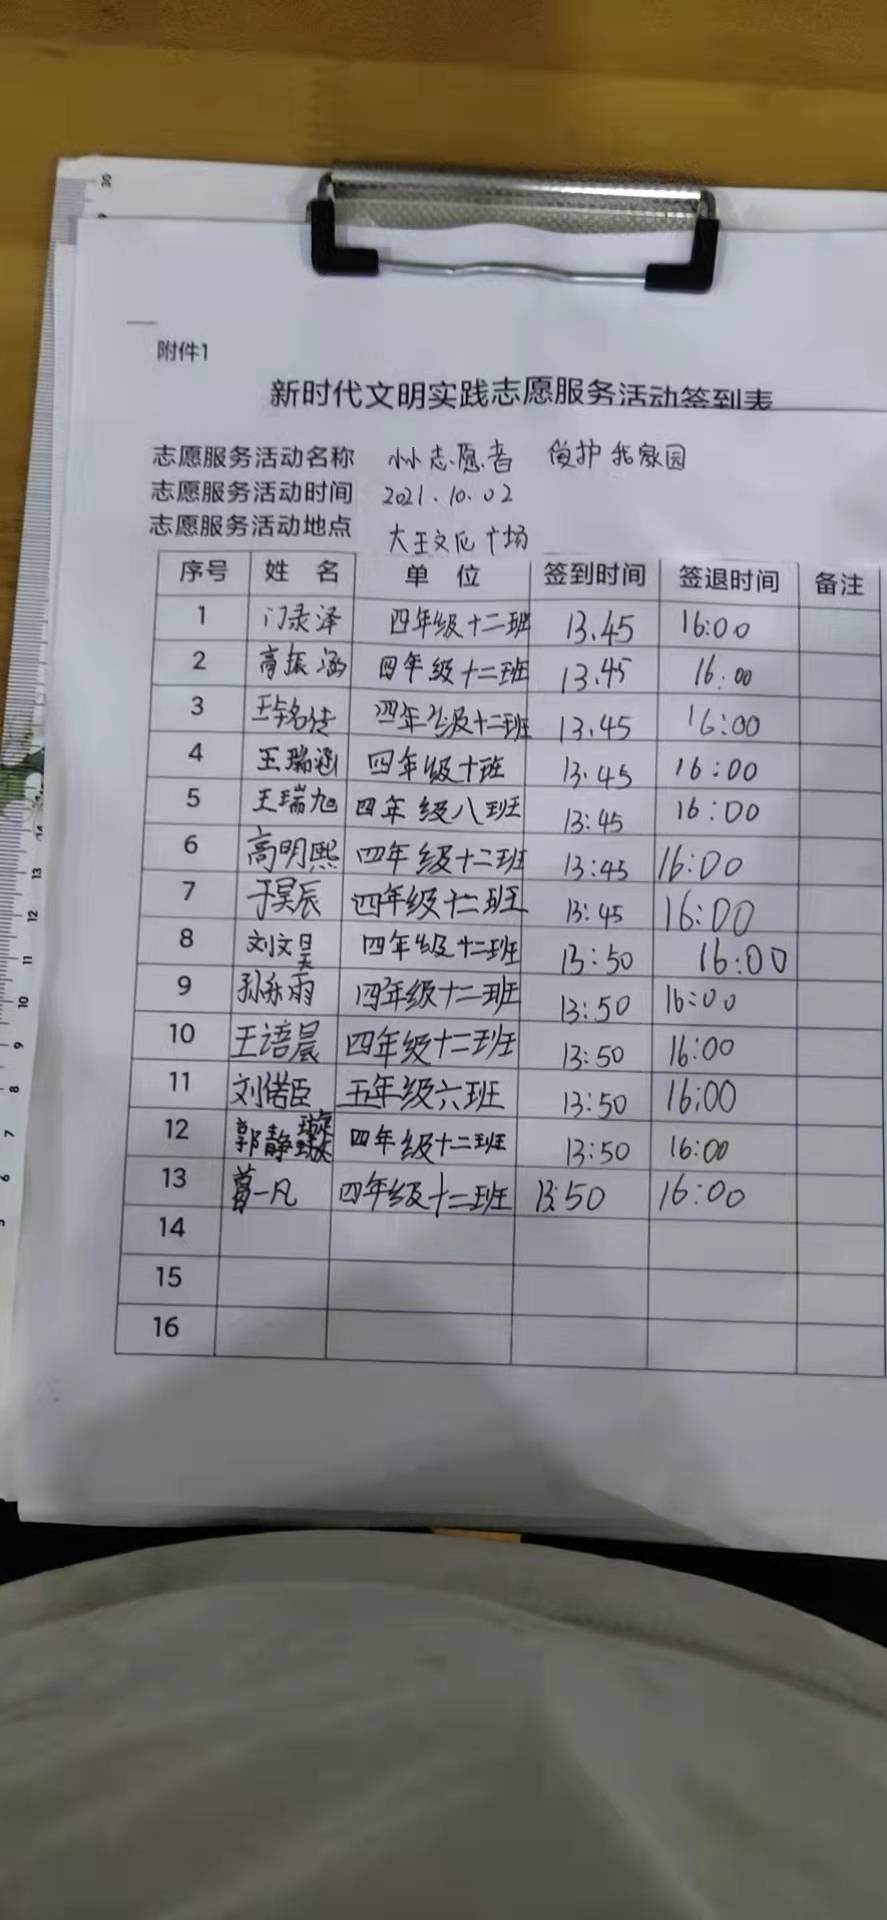 附件1
新时代文明实践志愿服务活动签到表
志愿服务活动名称 小小志愿者 守护我家园
志愿服务活动时间 2021.10.02
志愿服务活动地点 大王文化广场
序号 姓名 单位 签到时间 签退时间 备注
1 门录泽 四年级十二班 13.45 16:00
2 高振涵 四年级十二班 13.45 16:00
3 四年级十二班 13.45 16:00
4 王瑞涵 四年级十班 13.45 16:00
5 王瑞旭 四年级八班 13:45 16:00
6 高明熙 四年级十二班 13:45 16:00
7 于昊辰 四年级十二班 13:45 16:00
8 刘文昊 四年级十二班 13:50 16:00
9 四年级十二班 13:50 16:00
10 四年级十二班 13:50 16:00
11 刘偌臣 五年级六班 13:50 16:00
12 郭静璇 四年级十二班 13:50 16:00
13 一凡 四年级十二班 13:50 16:00
14
15
16